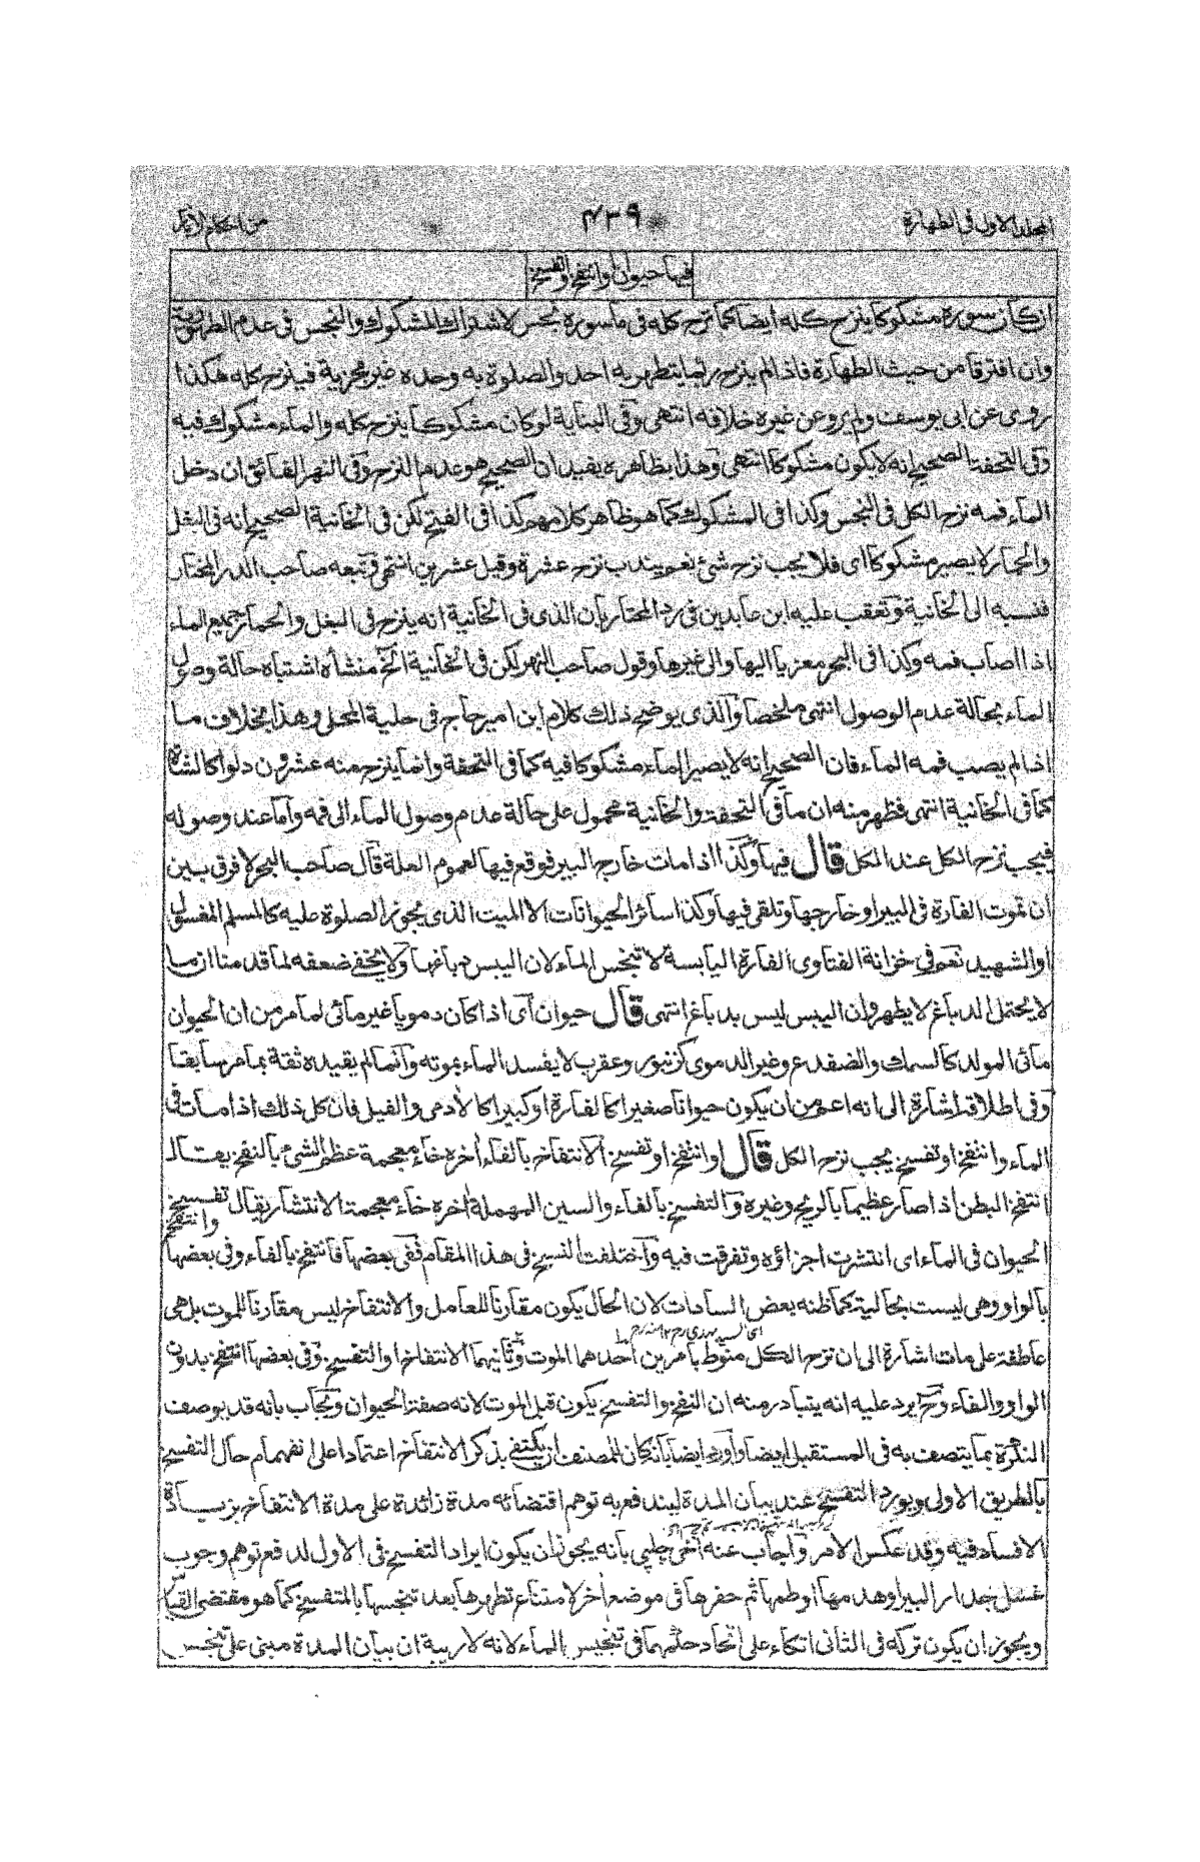 المجلد الاول في الطهارة
٤٣٩
من احكام الآبار
فيها حيوان وانتفخ او تفسخ
ان كان سوره مشكوكا ينزح كله ايضا كما نزح كله في ما سوره نجس لاشتراك المشكوك والنجس في عدم الطهورية
وان افترقا من حيث الطهارة فاذا لم ينزح ربما يتطهر به احد والصلوة به وحده غير مجزية فينزح كله هكذا
روى عن ابى يوسف ولم يرو عن غيره خلافه انتهى وفي البناية لو كان مشكوكا ينزح كله والماء مشكوك فيه
وفي التحفة الصحيح انه لا يكون مشكوكا انتهى وهذا بظاهره يفيد ان الصحيح هو عدم النزح وفي النهر الفائق ان دخل
الماء فمه نزح الكل في النجس وكذا في المشكوك كما هو ظاهر كلامهم كذا في الفتح لكن في الخانية الصحيح انه في البغل
والحمار لا يصير مشكوكا اى فلا يجب نزح شئ نعم يندب نزح عشرة وقيل عشرين انتهى وتبعه صاحب الدر المختار
فنسبه الى الخانية وتعقب عليه ابن عابدين في رد المحتار بان الذى في الخانية انه ينزح في البغل والحمار جميع الماء
اذا اصاب فمه وكذا في البحر معزيا اليها والى غيرها وقول صاحب النهر لكن في الخانية الخ منشأه اشتباه حالة وصول
الماء بحالة عدم الوصول انتهى ملخصا والذى يوضح ذلك كلام ابن امير حاج في حلية المحلى وهذا بخلاف ما
اذا لم يصب فمه الماء فان الصحيح انه لا يصير الماء مشكوكا فيه كما في التحفة وانما ينزح منه عشرون دلوا كالشاة
كما في الخانية انتهى فظهر منه ان ما في التحفة والخانية محمول على حالة عدم وصول الماء الى فمه واما عند وصوله
فيجب نزح الكل عند الكل قال فيها وكذا اذا مات خارج البير فوقع فيها لعموم العلة قال صاحب البحر لا فرق بين
ان تموت الفارة في البير او خارجها وتلقى فيها وكذا سائر الحيوانات الا الميت الذى يجوز الصلوة عليه كالمسلم المغسول
او الشهيد نعم في خزانة الفتاوى الفارة اليابسة لا تنجس الماء لان اليبس دباغها ولا يخفى ضعفه لما قدمنا ان ما
لا يحتمل الدباغ لا يطهر وان اليبس ليس بدباغ انتهى قال حيوان اى اذا كان دمويا غير مائى لما مر من ان الحيوان
مائى المولد كالسمك والضفدع وغير الدموى كزنبور وعقرب لا يفسد الماء بموته وانما لم يقيده ثقة بما مر سابقا
وفي اطلاقه اشارة الى انه اعم من ان يكون حيوانا صغيرا كالفارة او كبيرا كالآدمى والفيل فان كل ذلك اذا مات في
الماء وانتفخ او تفسخ يجب نزح الكل قال وانتفخ او تفسخ الانتفاخ بالفاء آخره خاء معجمة عظم الشئ بالنفخ يقال
انتفخ البطن اذا صار عظيما بالريح وغيره والتفسخ بالفاء والسين المهملة آخره خاء معجمة الانتشار يقال تفسخ
وانتفخ
الحيوان في الماء اى انتشرت اجزاؤه وتفرقت فيه واختلفت النسخ في هذا المقام ففى بعضها فانتفخ بالفاء وفي بعضها
بالواو وهى ليست بحالية كما ظنه بعض السادات لان الحال يكون مقارنا للعامل والانتفاخ ليس مقارنا للموت بل هى
اى السيد مهدى رح ١٢ منه رح
عاطفة على مات اشارة الى ان نزح الكل منوط بامرين احدهما الموت وثانيهما الانتفاخ او التفسخ وفي بعضها انتفخ بدون
الواو والفاء وح يرد عليه انه يتبادر منه ان النفخ والتفسخ يكون قبل الموت لانه صفة الحيوان ويجاب بانه قد يوصف
النكرة بما يتصف به في المستقبل ايضا واورد ايضا بانه كان للمصنف ان يكتفى بذكر الانتفاخ اعتمادا على انفهام حال التفسخ
بالطريق الاولى ويورد التفسخ عند بيان المدة ليندفع به توهم اقتضائه مدة زائدة على مدة الانتفاخ بزيادة
الافساد فيه وقد عكس الامر واجاب عنه اخى چلپى بانه يجوز ان يكون ايراد التفسخ في الاول لدفع توهم وجوب
غسل جدار البير او هدمها او طمها ثم حفرها في موضع آخر لامتناع تطهرها بعد تنجسها بالمتفسخ كما هو مقتضى القياس
ويجوز ان يكون تركه في الثانى اتكاء على اتحاد حكمهما في تنجيس الماء لانه لا ريبة ان بيان المدة مبنى على تنجس